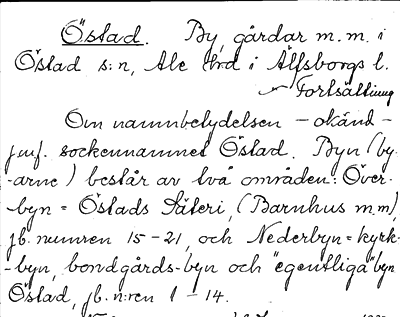 Östad. By, gårdar m. m. i
Östad s:n, Ale hrd i Älfsborgs l.
Fortsättning
Om namnbetydelsen – okänd –
jmf. sockennamnet Östad. Byn (by-
-arne) består av två områden: Över-
-byn = Östads Säteri, (Barnhus m. m),
jb. numren 15–21, och Nederbyn = kyrk-
-byn, bondgårds-byn och "egentliga" byn
Östad, jb. n:ren 1–14.